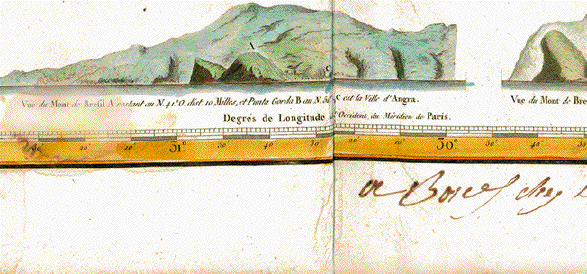 A
C
Vue du Mont de Bresil A restant au N. 41° O. dist. 10 Milles, et Punta Gorda B au N. C est la Ville d'Angra.
Vue du Mont de Bre
Degrés de Longitude Occident. du Méridien de Paris.
50 40 20 10 31° 50 40 20 10 30° 50 40
a